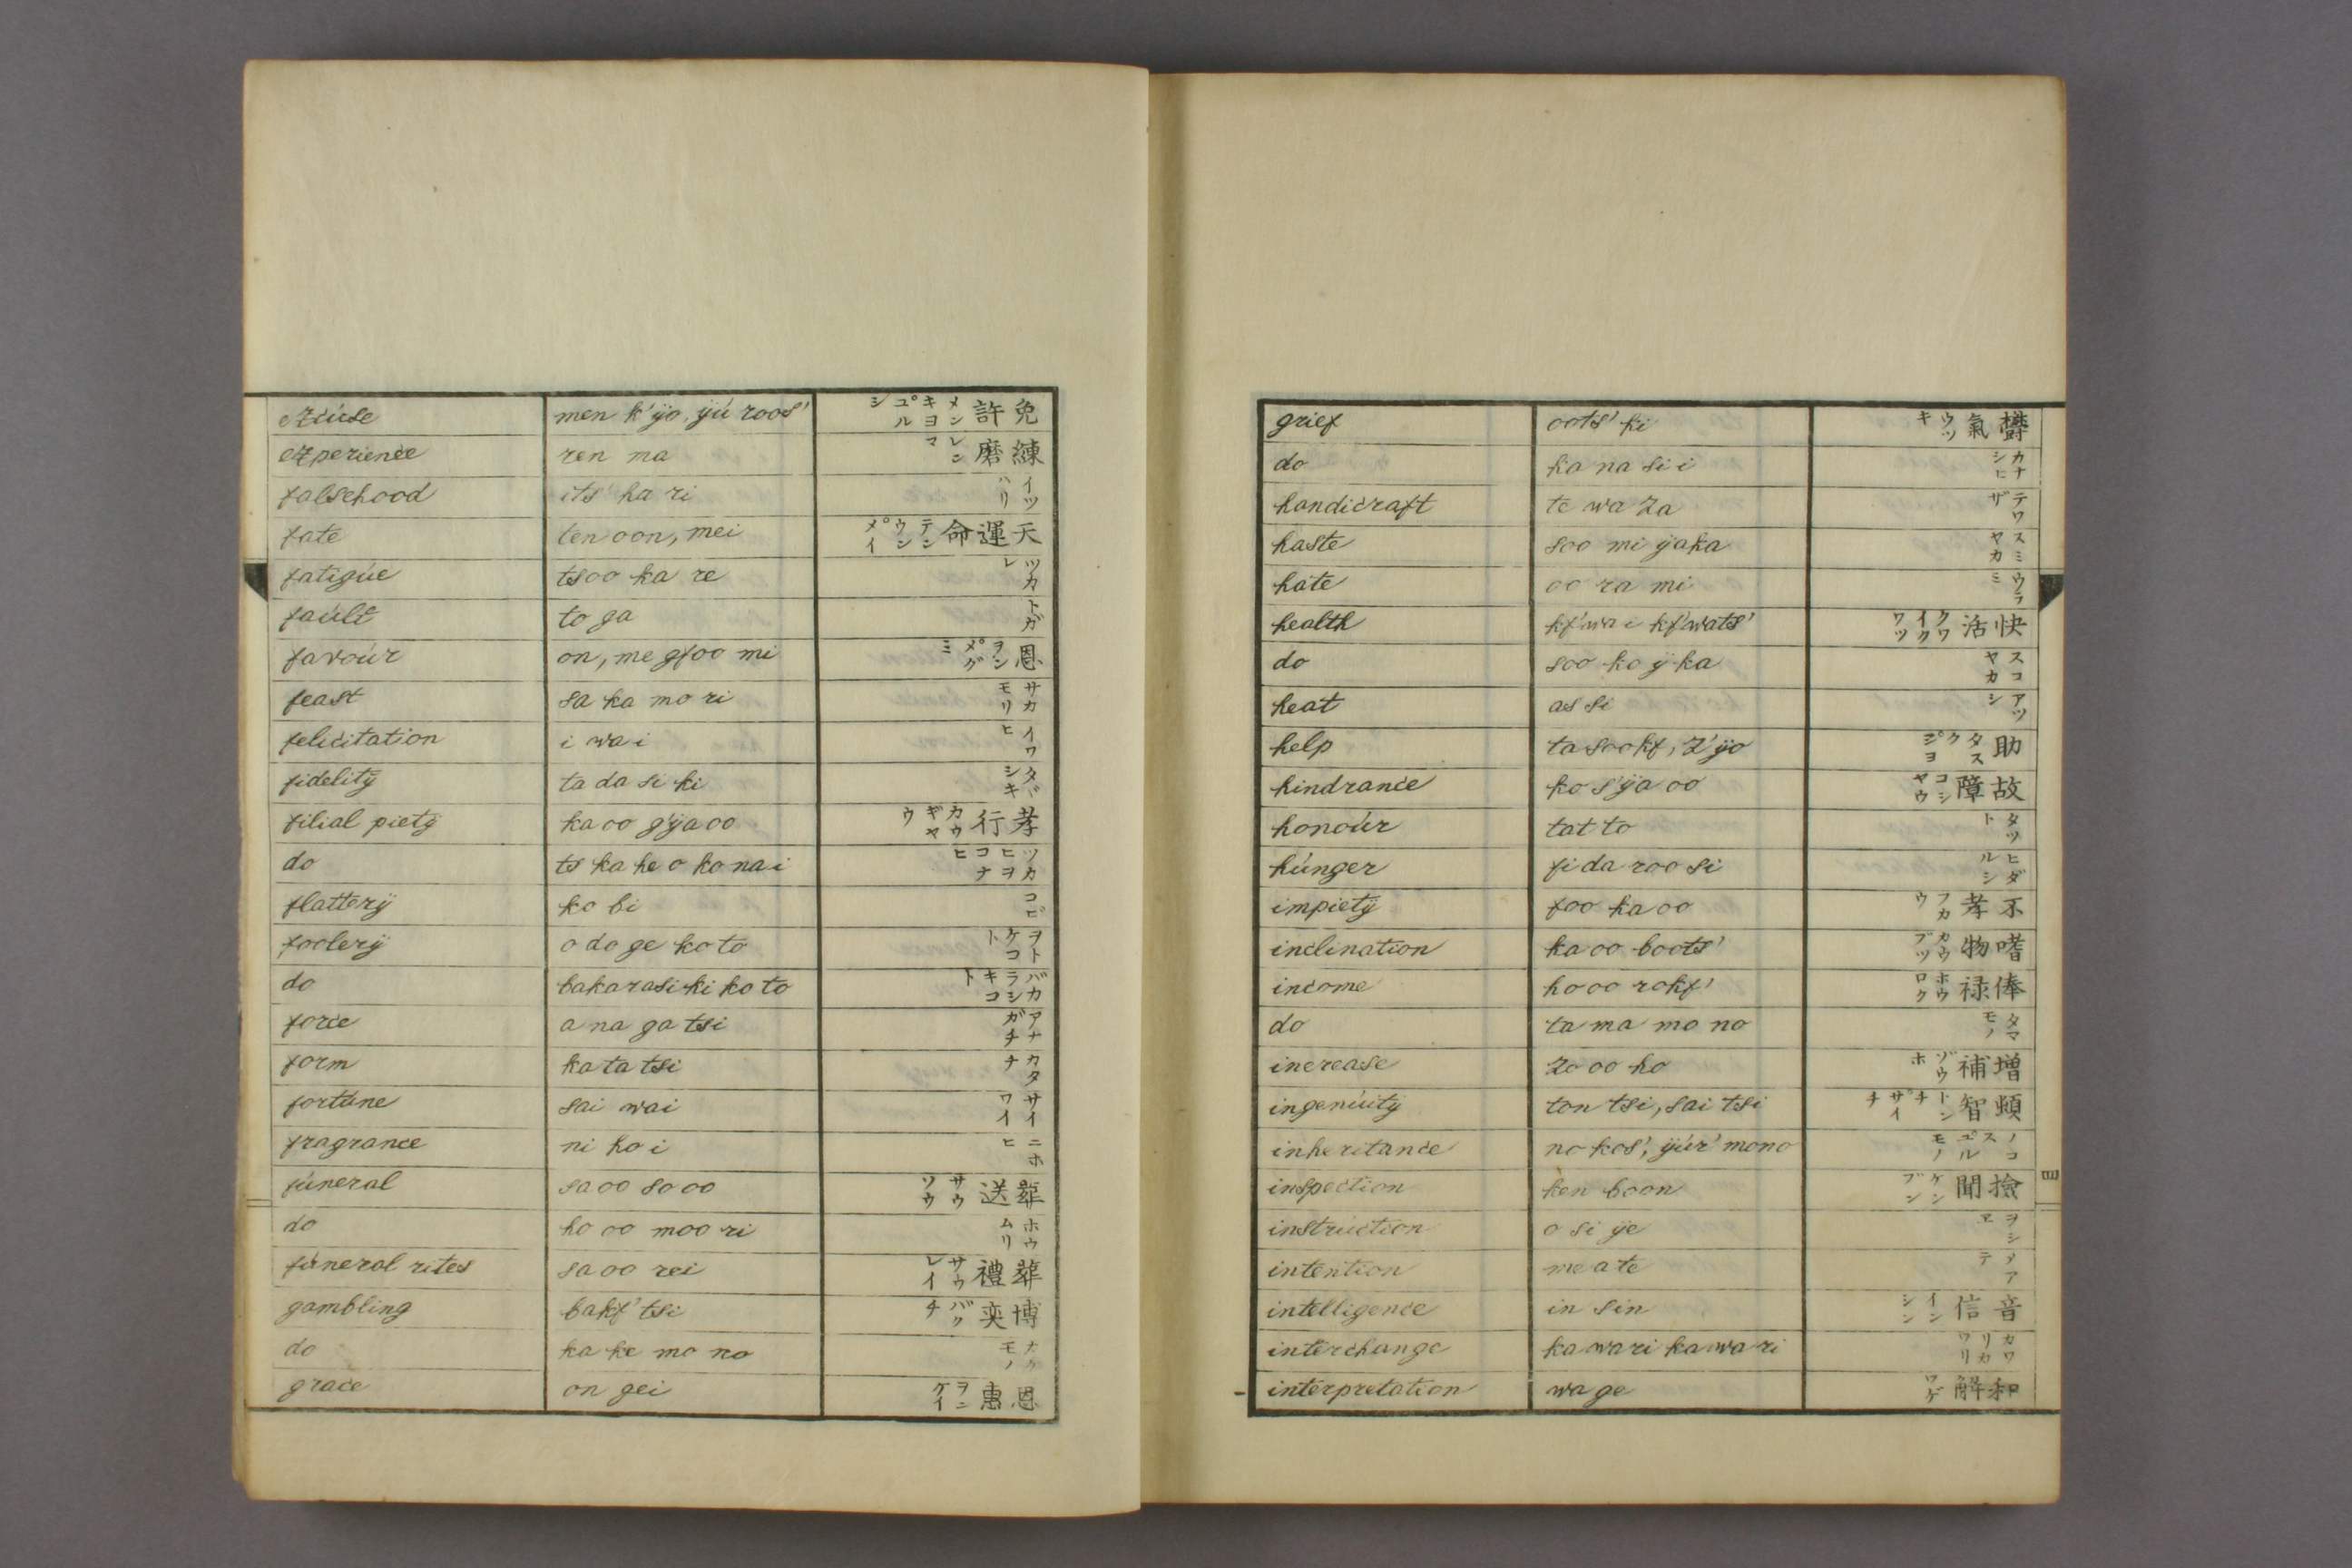 excúse men k'ÿo, ÿú roos' 免許 メンキヨ ユルシ
experience ren ma 練磨 レンマ
falsehood its' ha ri イツハリ
fate ten oon, mei 天運命 テンウンメイ
fatigúe tsoo ka re ツカレ
faúlt to ga トガ
favoúr on, me gfoo mi 恩 ヲンメグミ
feast sa ka mo ri サカモリ
felicitation i wa i イワヒ
fidelitÿ ta da si ki タヾシキ
filial pietÿ ka oo g'ÿa oo 孝行 カウギヤウ
do ts ka he o ko na i ツカヒヲコナヒ
flatterÿ ko bi コビ
foolerÿ o do ge ko to ヲトケコト
do bakarasi ki ko to バカラシキコト
force a na ga tsi アナガチ
form ka ta tsi カタチ
fortúne sai wai サイワイ
fragrance ni ho i ニホヒ
fúneral sa oo so oo 葬送 サウソウ
do ho oo moo ri ホウムリ
fúneral rites sa oo rei 葬禮 サウレイ
gambling bakf' tsi 博奕 バクチ
do ka ke mo no カケモノ
grace on gei 恩惠 ヲンケイ
grief oots' ki 欝氣 ウツキ
do ka na si i カナシヒ
handicraft te wa za テワザ
haste soo mi ÿaka スミヤカ
hate oo ra mi ウラミ
health kf'wa i kf'wats' 快活 クワイクワツ
do soo ko ÿ ka スコヤカ
heat as si アツシ
help ta sookf, z'ÿo 助 タスクジヨ
hindrance ko s'ÿa oo 故障 コシヤウ
honoúr tat to タツト
húnger fi da roo si ヒダルシ
impietÿ foo ka oo 不孝 フカウ
inclination ka oo boots' 嗜物 カウブツ
income ho oo rokf' 俸禄 ホウロク
do ta ma mo no タマモノ
increase zo oo ho 増補 ゾウホ
ingenúitÿ ton tsi, sai tsi 頓智 トンチサイチ
inheritance no kos', ÿúr' mono ノコスユルモノ
inspection ken boon 撿聞 ケンブン
instrúction o si ÿe ヲシヱ
intention me a te メアテ
intelligence in sin 音信 インシン
interchange ka wa ri ka wa ri カワリカワリ
interpretation wa ge 和解 ワゲ